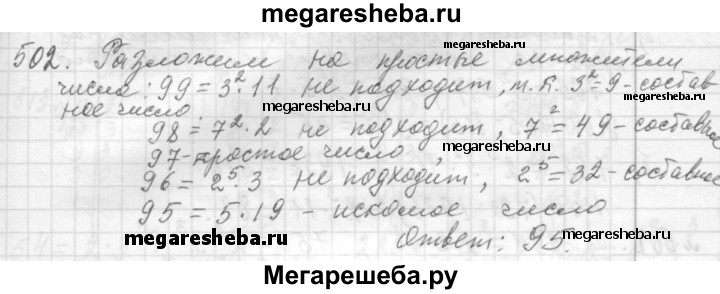 megaresheba.ru
502. Разложим на простые множители
числа: 99 = 3²·11 не подходит, т.к. 3²=9-состав-
ное число;
megaresheba.ru megaresheba.ru
98 = 7²·2 не подходит, 7²=49-составное
megaresheba.ru megaresheba.ru
97-простое число,
96 = 2⁵·3 не подходит, 2⁵=32-составное
95 = 5·19 - искомое число
megaresheba.ru megaresheba.ru
Ответ: 95.
Мегарешеба.ру